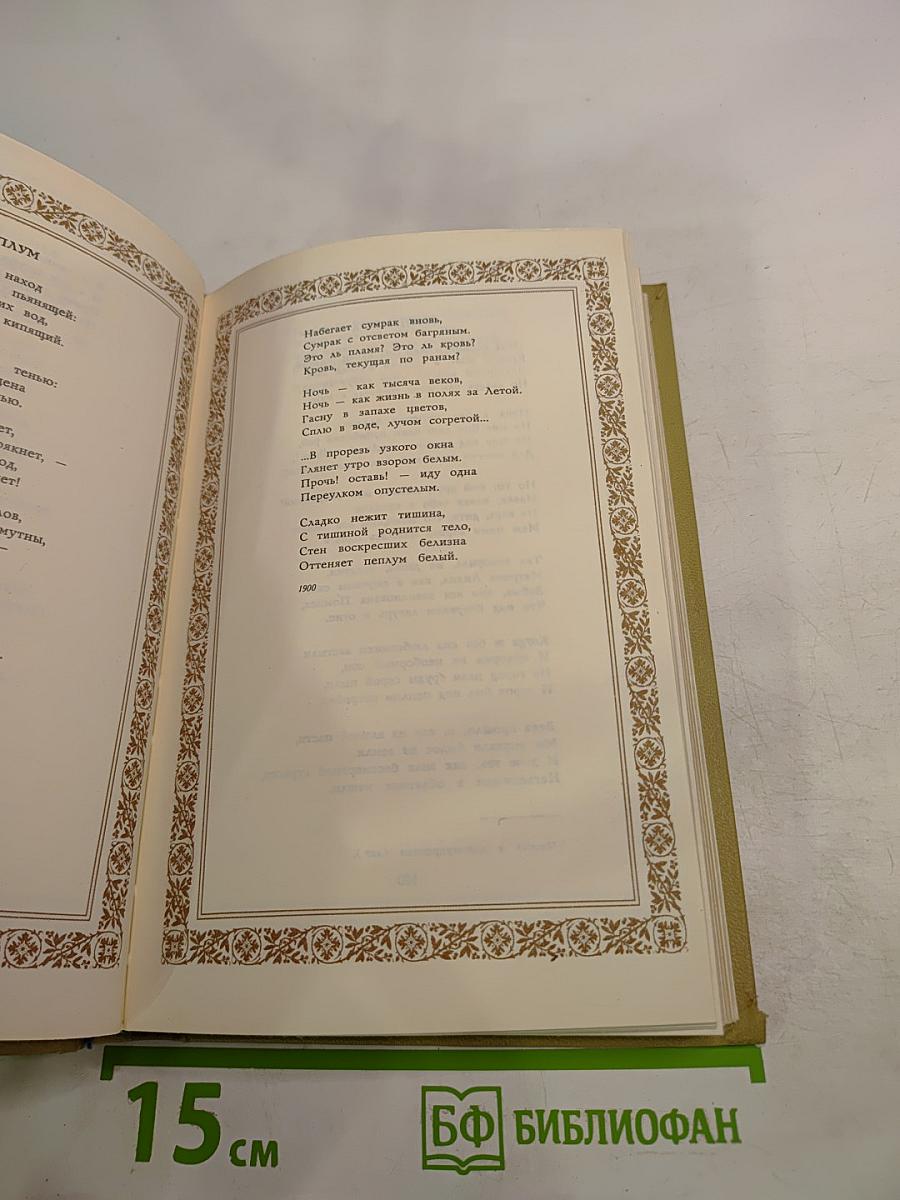 ПЛУМ
наход
пьянящей:
их вод,
кипящий.
тенью:
дена
ью.
ет,
рякнет, —
од,
ет!
лов,
мутны,
—
Набегает сумрак вновь,
Сумрак с отсветом багряным.
Это ль пламя? Это ль кровь?
Кровь, текущая по ранам?
Ночь — как тысяча веков,
Ночь — как жизнь в полях за Летой.
Гасну в запахе цветов,
Сплю в воде, лучом согретой...
...В прорезь узкого окна
Глянет утро взором белым.
Прочь! оставь! — иду одна
Переулком опустелым.
Сладко нежит тишина,
С тишиной роднится тело,
Стен воскресших белизна
Оттеняет пеплум белый.
1900
15 см
БФ БИБЛИОФАН